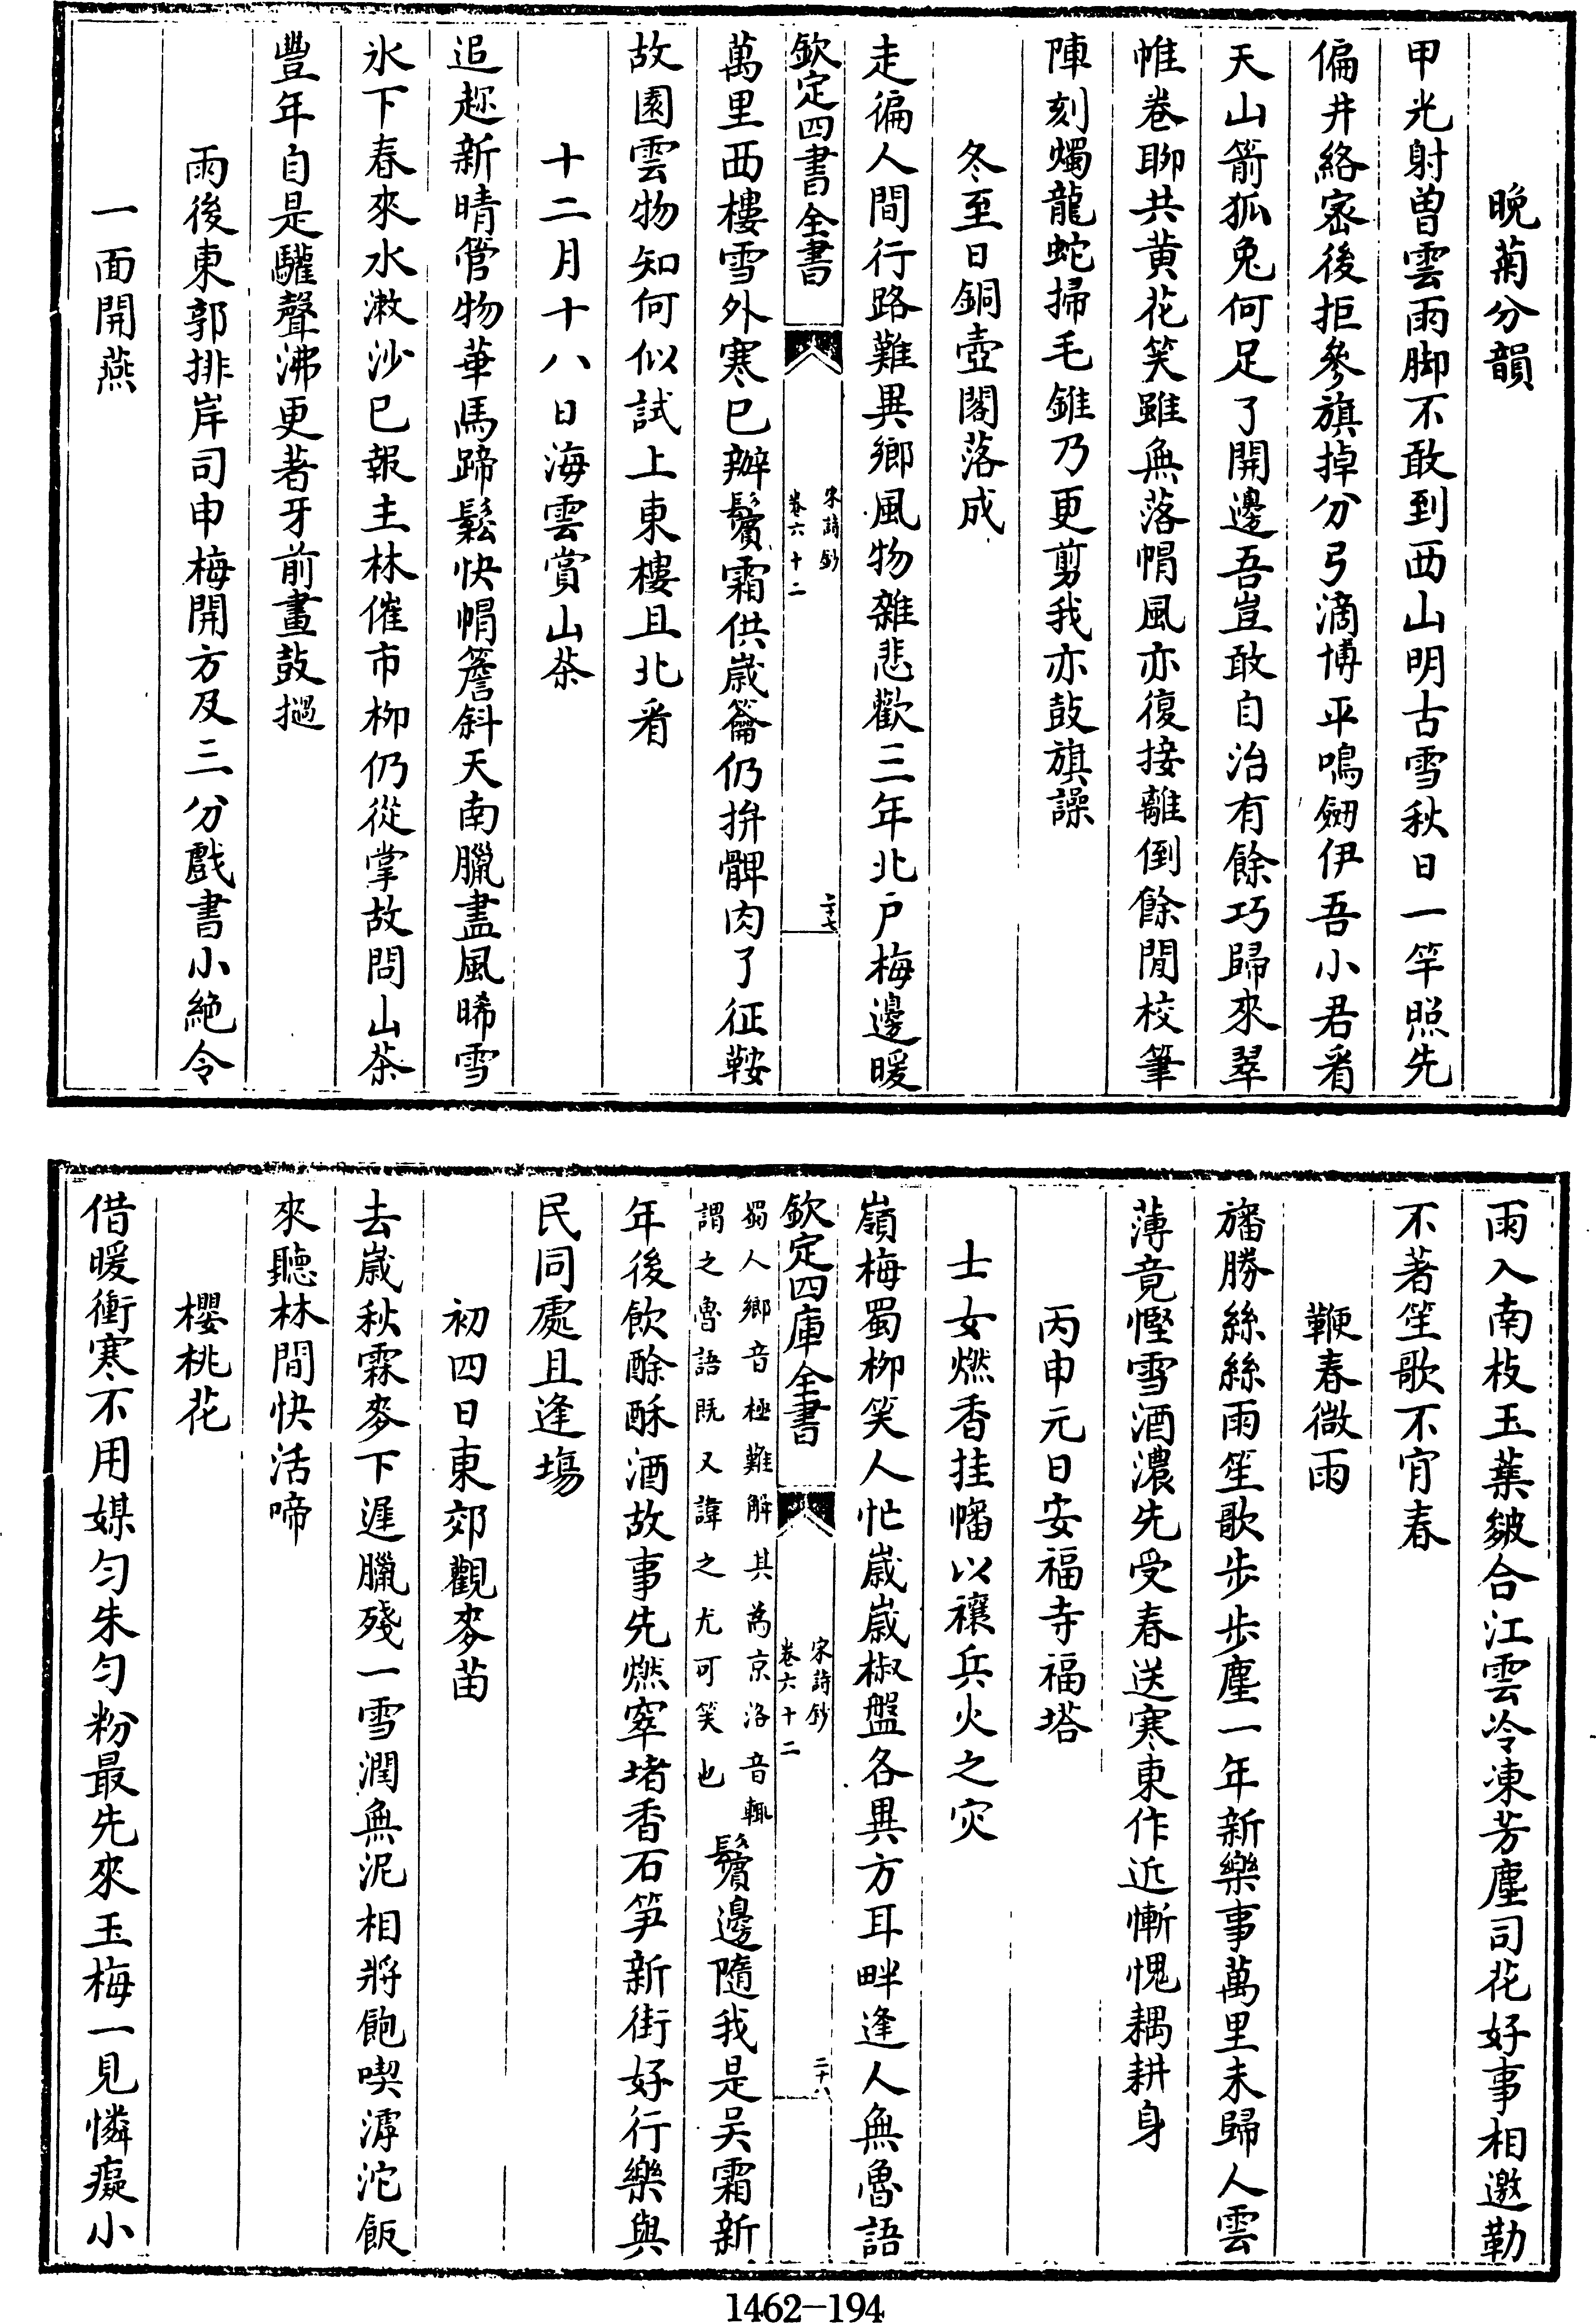 晚菊分韻
甲光射曽雲雨脚不敢到西山明古雪秋日一竿照先
偏井絡宻後拒參旗掉分弓滴博平鳴劒伊吾小君㸔
天山箭狐兔何足了開邊吾豈敢自治有餘巧歸來翠
帷巻聊共黄花笑雖無落帽風亦復接䍦倒餘閒校筆
陣刻燭龍蛇掃毛錐乃更剪我亦鼓旗譟
冬至日銅壺閣落成
走徧人間行路難異鄉風物雜悲歡三年北戸梅邊暖
欽定四書全書
宋詩鈔
卷六十二
二十七
萬里西樓雪外寒已辦鬢霜供嵗籥仍拚髀肉了征鞍
故園雲物知何似試上東樓且北㸔
十二月十八日海雲賞山茶
追趂新晴管物華馬蹄鬆快帽簷斜天南臘盡風晞雪
氷下春來水漱沙已報主林催市栁仍從掌故問山茶
豐年自是驩聲沸更著牙前畫鼓撾
雨後東郭排岸司申梅開方及三分戲書小絶令
一面開燕
雨入南枝玉蘂皴合江雲冷凍芳塵司花好事相邀勒
不著笙歌不肎春
鞭春微雨
旛勝絲絲雨笙歌步步塵一年新樂事萬里未歸人雲
薄竟慳雪酒濃先受春送寒東作近慚愧耦耕身
丙申元日安福寺福塔
士女燃香挂幡以禳兵火之灾
嶺梅蜀栁笑人忙嵗嵗椒盤各異方耳畔逢人無魯語
欽定四庫全書
宋詩鈔
卷六十二
二十八
蜀人鄉音極難解其為京洛音輙
謂之魯語既又諱之尤可笑也
鬢邊隨我是吴霜新
年後飲酴酥酒故事先燃窣堵香石笋新街好行樂與
民同處且逢塲
初四日東郊觀麥苗
去嵗秋霖麥下遲臘殘一雪潤無泥相將飽喫滹沱飯
來聽林間快活啼
櫻桃花
借暖衝寒不用媒匀朱匀粉最先來玉梅一見憐癡小
1462-194